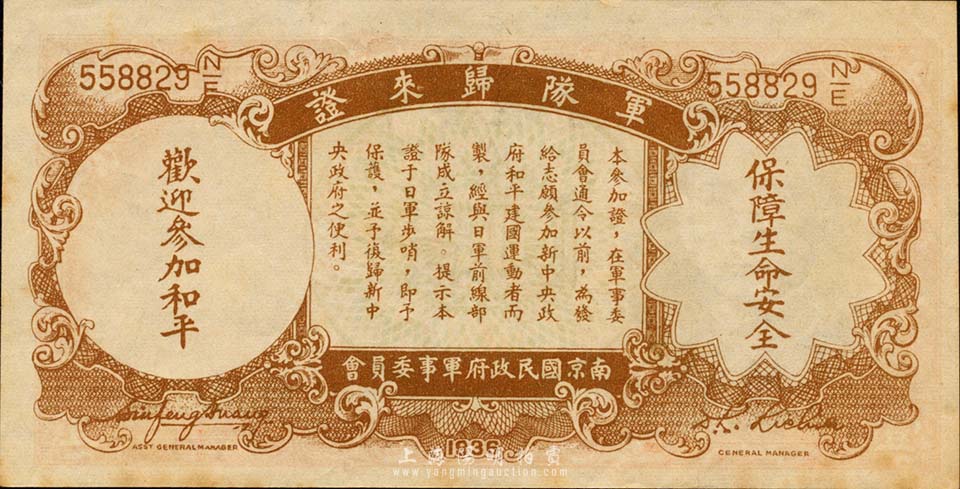 558829 N/E
軍隊歸來證
558829 N/E
保障生命安全
本參加證，在軍事委
員會通令以前，為發
給志願參加新中央政
府和平建國運動者而
製，經與日軍前線部
隊成立諒解。提示本
證于日軍步哨，即予
保護，並予復歸新中
央政府之便利。
歡迎參加和平
南京國民政府軍事委員會
ASST GENERAL MANAGER
1936
GENERAL MANAGER
上海陽明拍賣
www.yangmingauction.com